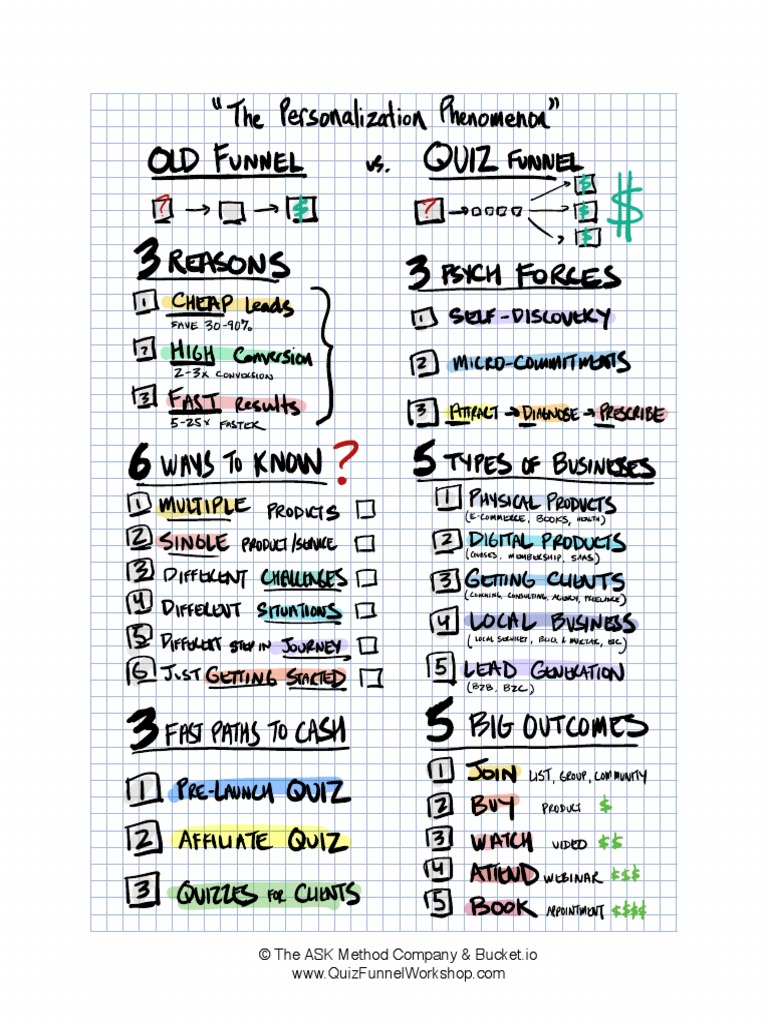 "The Personalization Phenomenon"
OLD FUNNEL vs. QUIZ FUNNEL
? $
? $ $ $ $
3 REASONS
1 CHEAP Leads
SAVE 30-90%
2 HIGH Conversion
2-3x CONVERSION
3 FAST Results
5-25x FASTER
3 PSYCH FORCES
1 SELF-DISCOVERY
2 MICRO-COMMITMENTS
3 ATTRACT → DIAGNOSE → PRESCRIBE
6 WAYS TO KNOW ?
1 MULTIPLE PRODUCTS
2 SINGLE PRODUCT/SERVICE
3 DIFFERENT CHALLENGES
4 DIFFERENT SITUATIONS
5 DIFFERENT STEP IN JOURNEY
6 JUST GETTING STARTED
5 TYPES OF BUSINESSES
1 PHYSICAL PRODUCTS
(E-COMMERCE, BOOKS, HEALTH)
2 DIGITAL PRODUCTS
(COURSES, MEMBERSHIP, SAAS)
3 GETTING CLIENTS
(COACHING, CONSULTING, AGENCY, FREELANCE)
4 LOCAL BUSINESS
(LOCAL SERVICES, BRICK & MORTAR, ETC)
5 LEAD GENERATION
(B2B, B2C)
3 FAST PATHS TO CASH
1 PRE-LAUNCH QUIZ
2 AFFILIATE QUIZ
3 QUIZZES FOR CLIENTS
5 BIG OUTCOMES
1 JOIN LIST, GROUP, COMMUNITY
2 BUY PRODUCT $
3 WATCH VIDEO $$
4 ATTEND WEBINAR $$$
5 BOOK APPOINTMENT $$$$
© The ASK Method Company & Bucket.io
www.QuizFunnelWorkshop.com